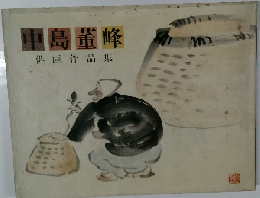 中島菫峰
俳画作品集